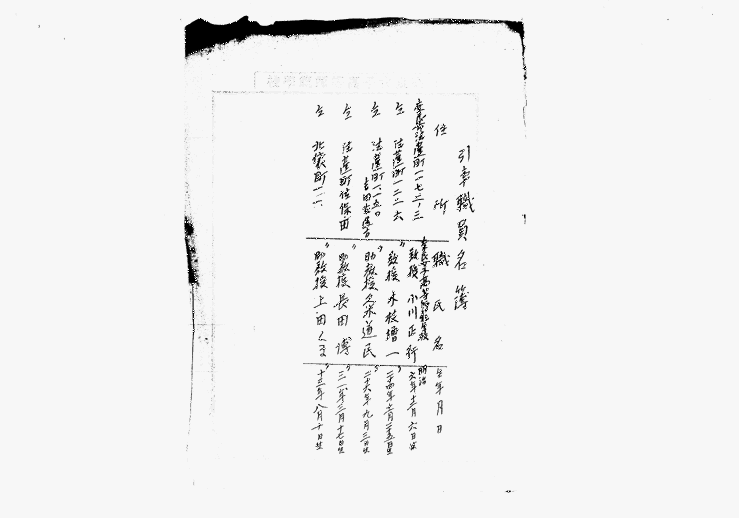 引率職員名簿
住所 職氏名 生年月日
奈良市法蓮町一一七二ノ三 奈良女子高等師範学校教授 小川正行 明治六年十二月六日生
仝 法蓮町一二二六 〃教授 水枝繪一 〃二十四年 月二十五日生
仝 法蓮町一一五〇 助教授 久米道民 〃二十六年九月三日生
仝 法蓮町佐保田 〃助教授 長田博 〃三一年三月十七日生
仝 北袋町一一 〃助教授 上田くる 〃十三年八月十日生